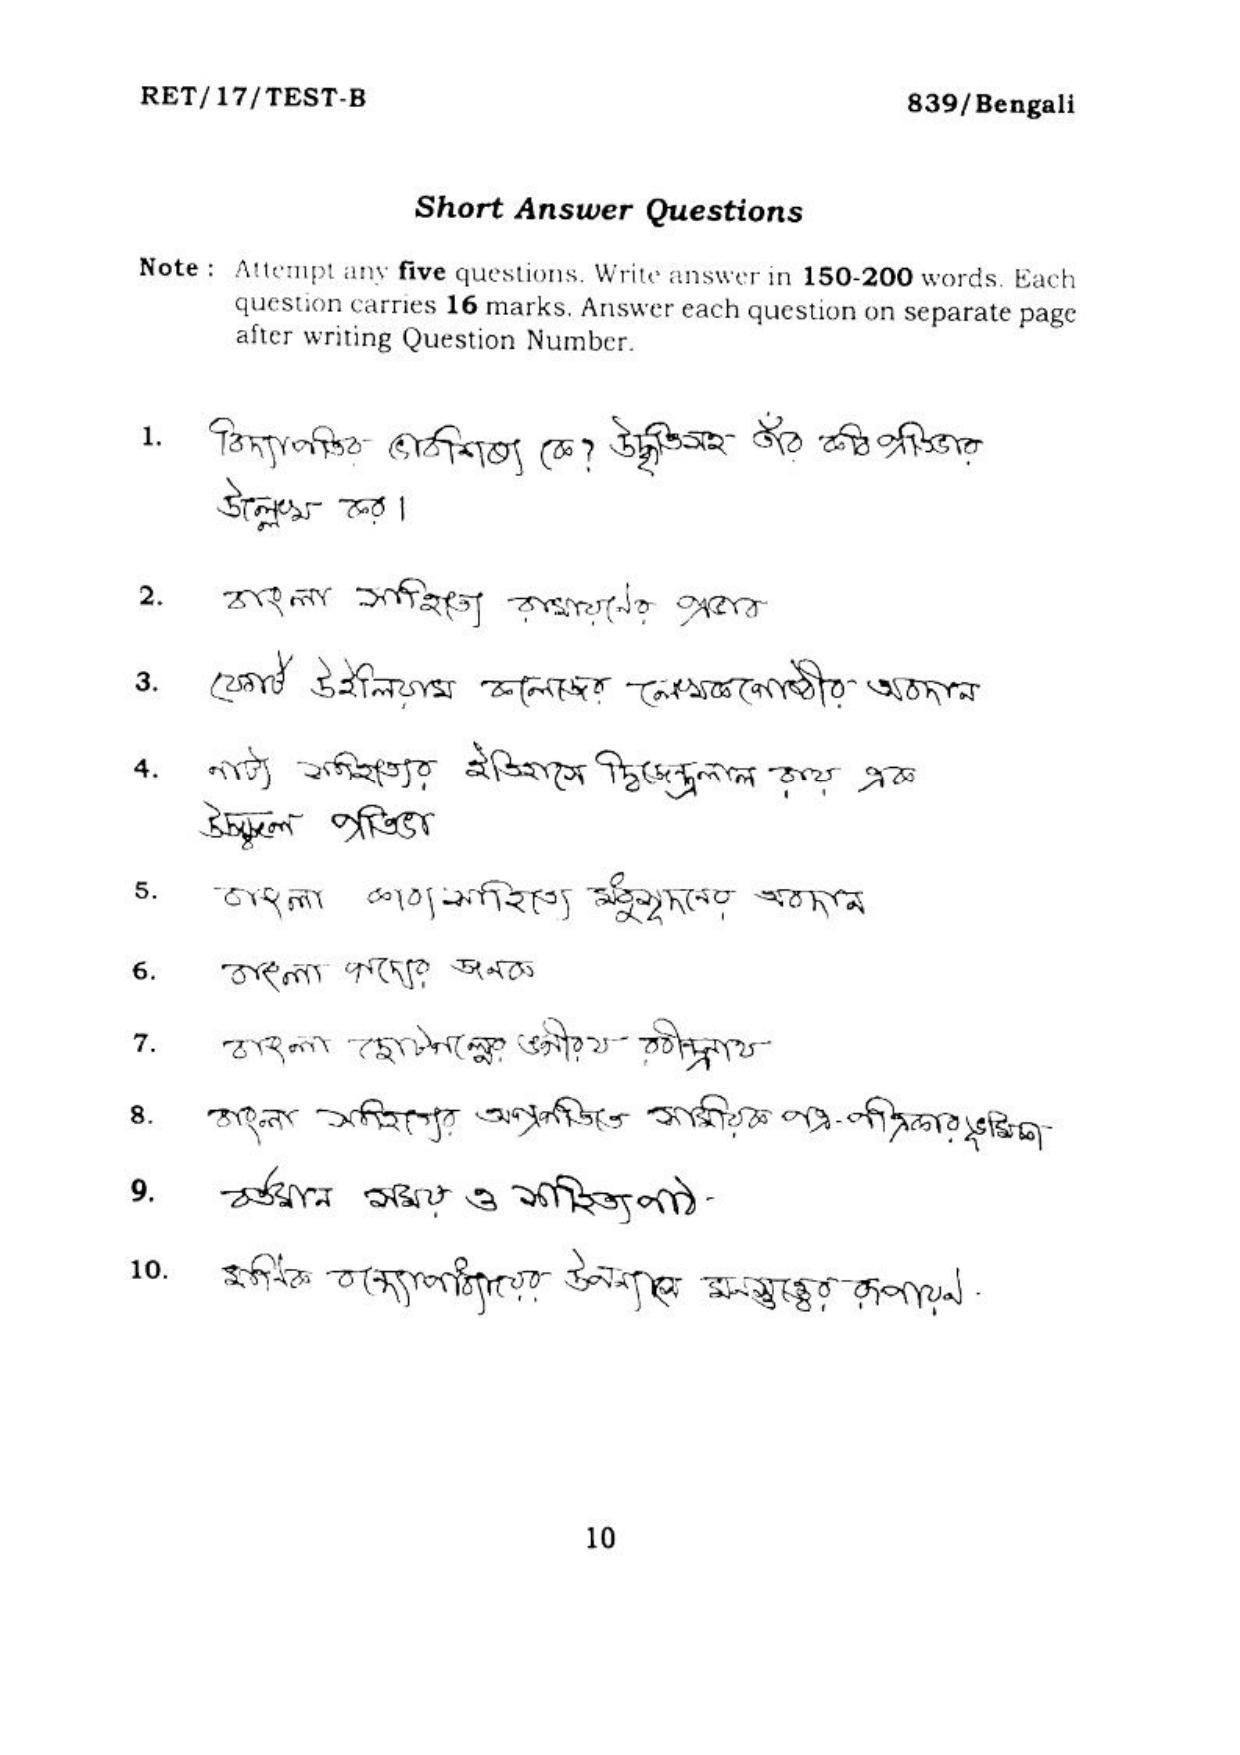 RET/17/TEST-B
839/Bengali
Short Answer Questions
Note : Attempt any five questions. Write answer in 150-200 words. Each
question carries 16 marks. Answer each question on separate page
after writing Question Number.
1. বিদ্যাপতির ভাবশিষ্য কে? উদ্ধৃতিসহ তাঁর কবি প্রতিভার
উল্লেখ কর।
2. বাংলা সাহিত্যে রামায়ণের প্রভাব
3. ফোর্ট উইলিয়াম কলেজের লেখকগোষ্ঠীর অবদান
4. নাট্য সাহিত্যের ইতিহাসে দ্বিজেন্দ্রলাল রায় এক
উজ্জ্বল প্রতিভা
5. বাংলা কাব্যসাহিত্যে মধুসূদনের অবদান
6. বাংলা গদ্যের জনক
7. বাংলা ছোটগল্পের ভগীরথ রবীন্দ্রনাথ
8. বাংলা সাহিত্যের অগ্রগতিতে সাময়িক পত্র-পত্রিকার ভূমিকা
9. বর্তমান সময় ও সাহিত্যপাঠ -
10. মানিক বন্দ্যোপাধ্যায়ের উপন্যাসে মনস্তত্ত্বের রূপায়ণ .
10